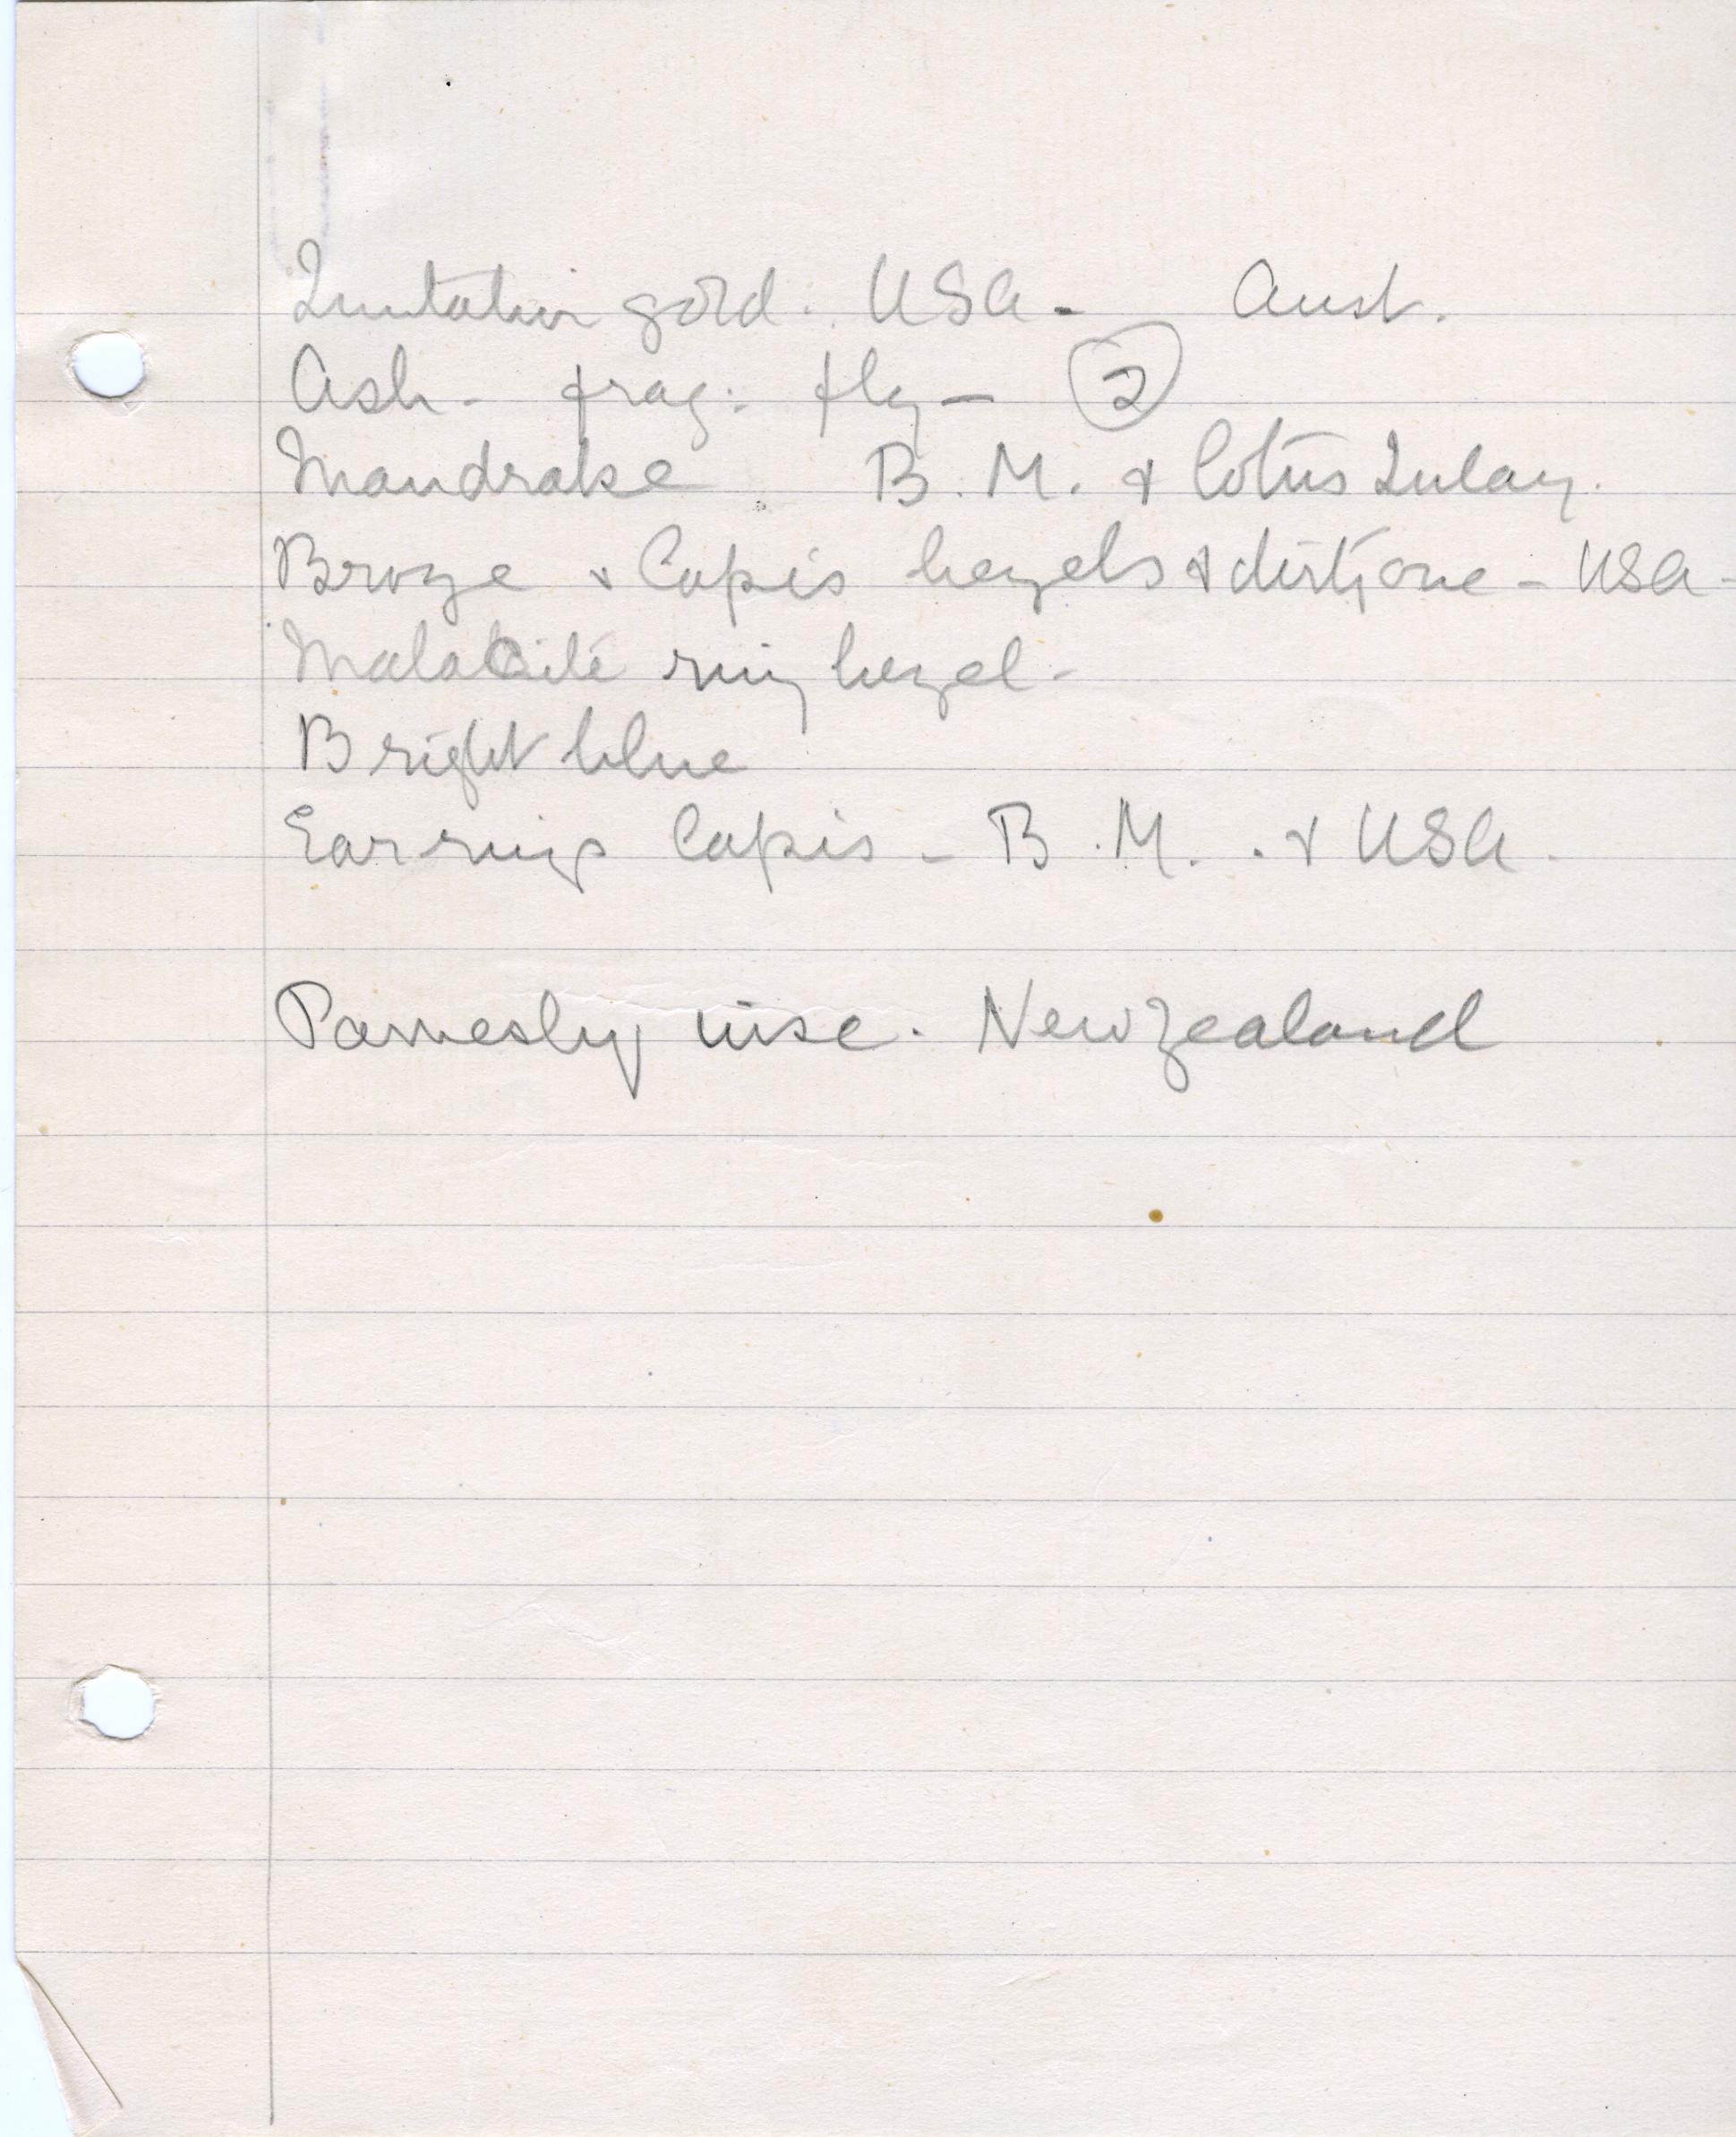 Imitation gold. USA - Aust.
Ash - frag: fly - 2
Mandrake B. M. & lotus Inlay.
Broze & Lapis bezels & dirty one - USA -
Malacite ring bezel -
Bright blue
Earrings Lapis - B. M. . & USA -
misc. New Zealand